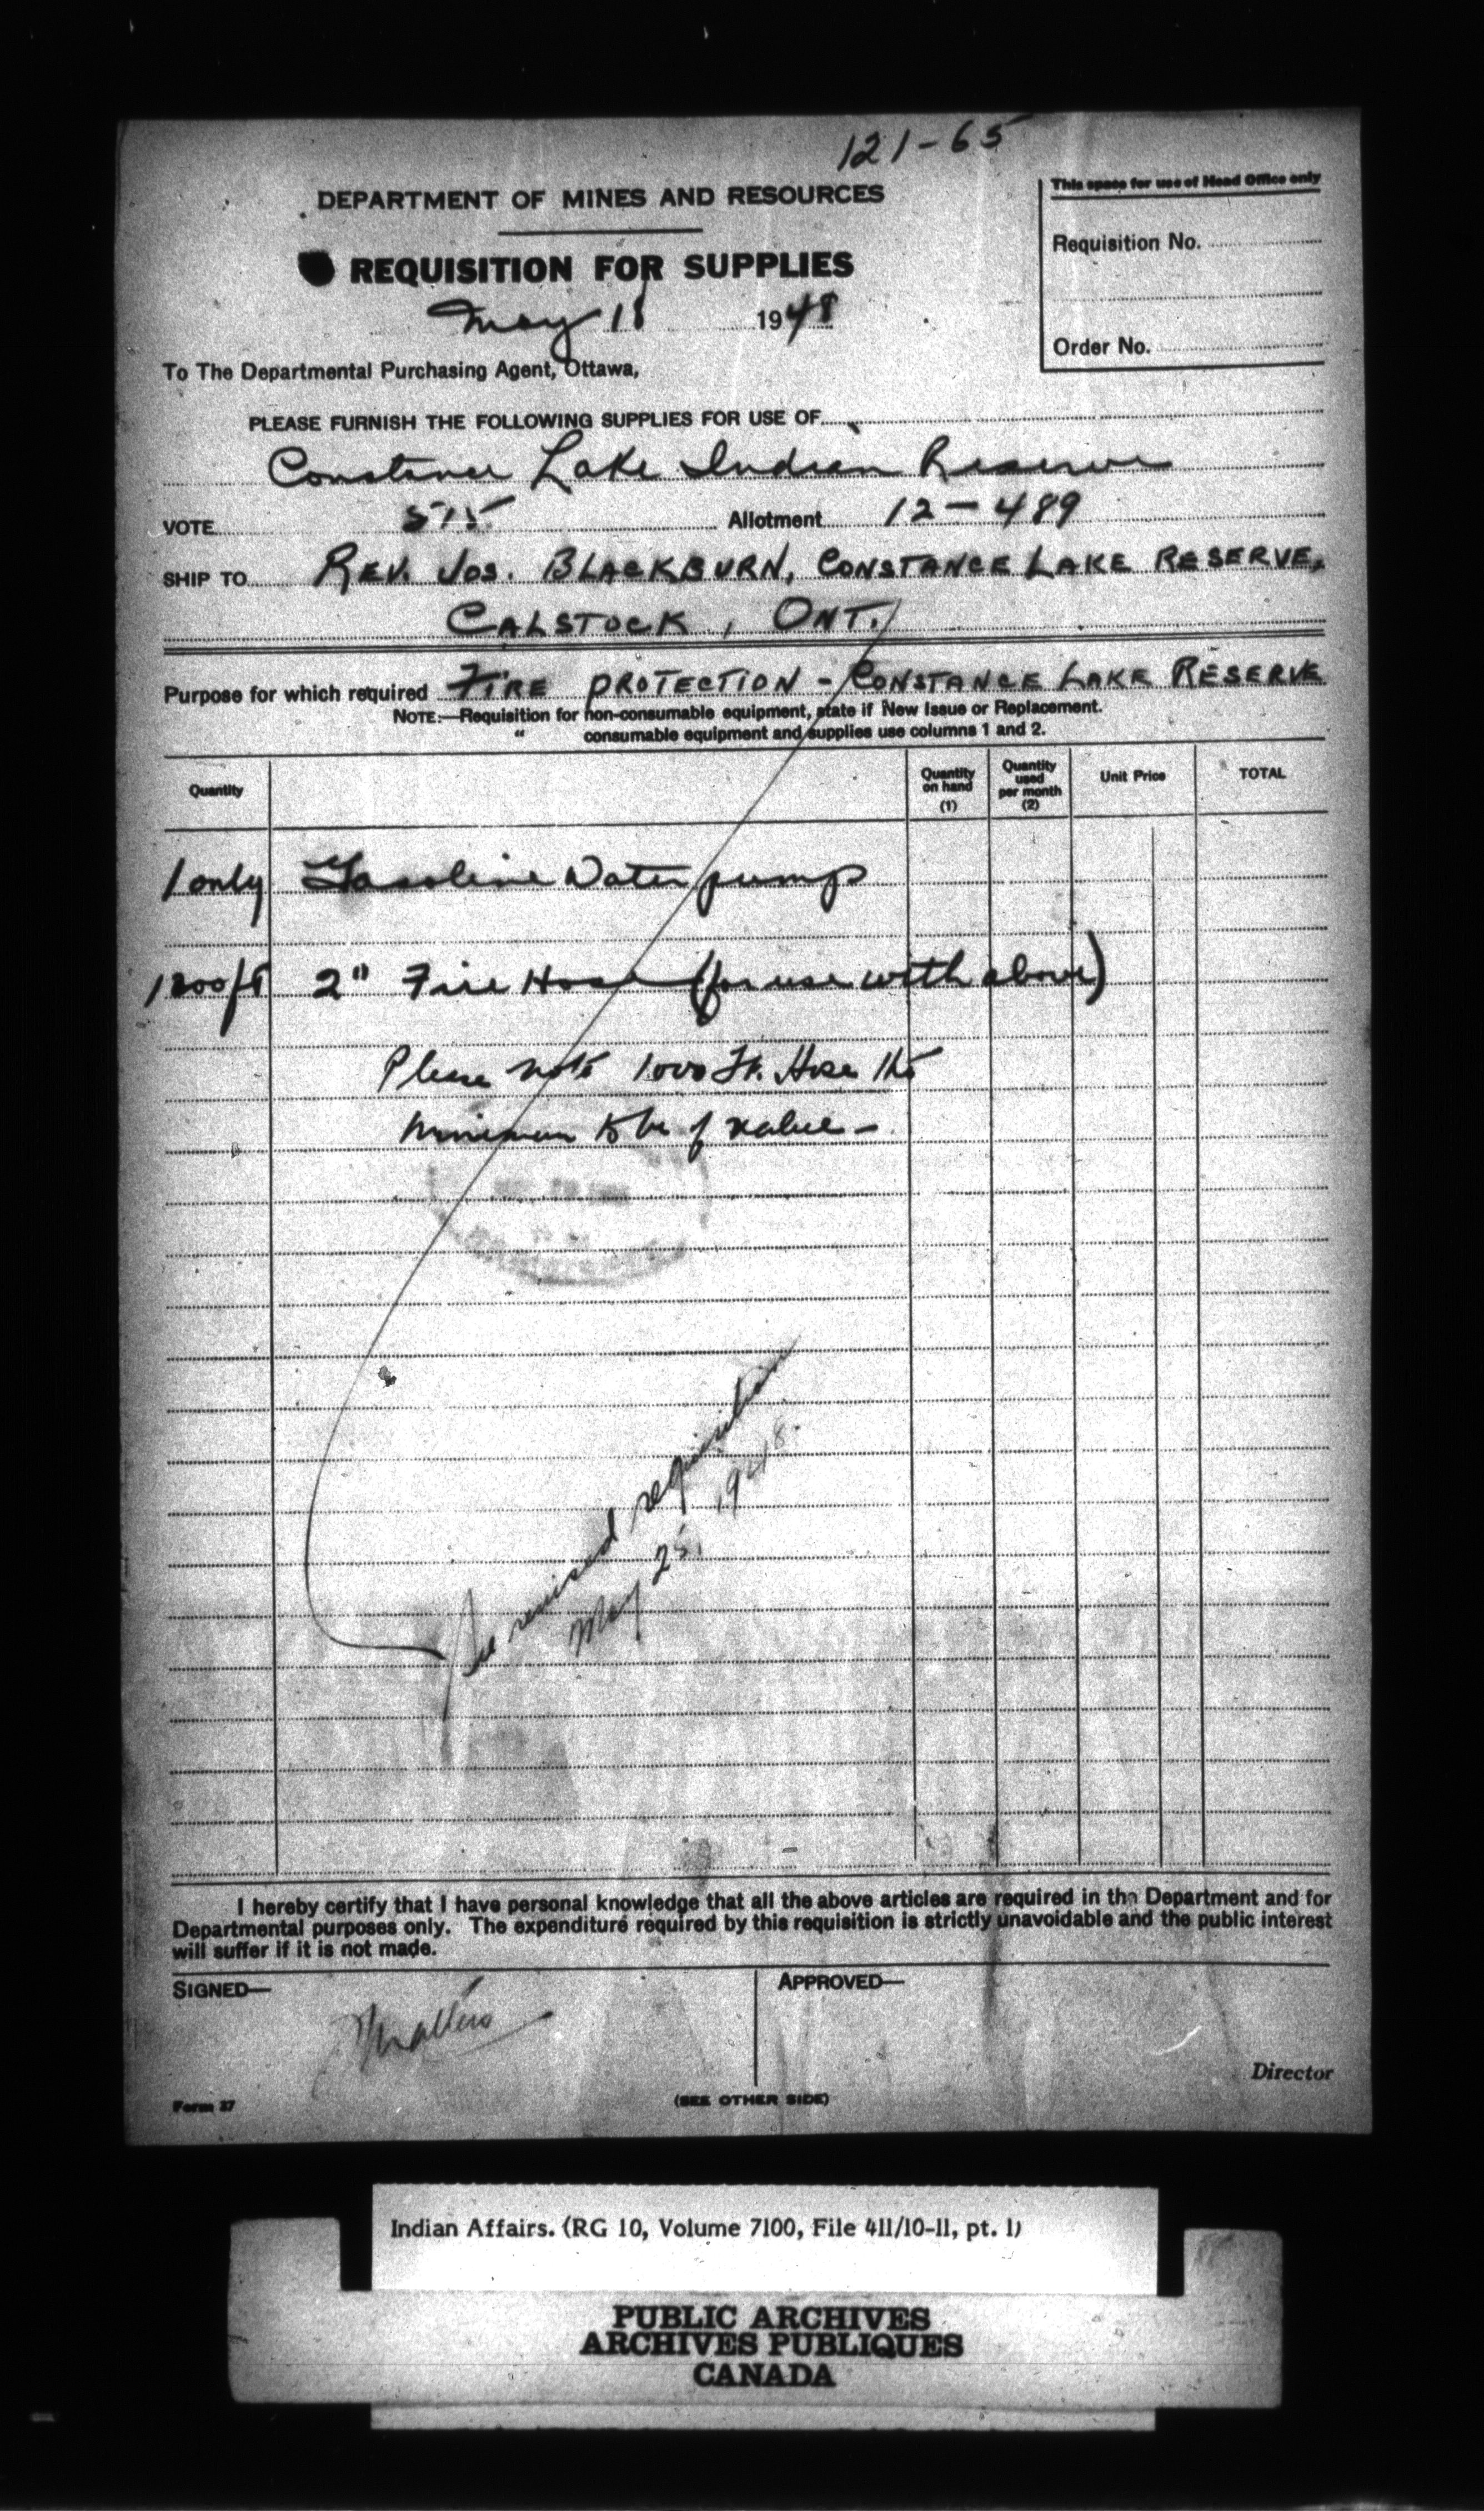 121-65
DEPARTMENT OF MINES AND RESOURCES
REQUISITION FOR SUPPLIES
May 18 1948
This space for use of Head Office only
Requisition No.
Order No.
To The Departmental Purchasing Agent, Ottawa,
PLEASE FURNISH THE FOLLOWING SUPPLIES FOR USE OF
Constance Lake Indian Reserve
VOTE 515 Allotment 12-489
SHIP TO REV. JOS. BLACKBURN, CONSTANCE LAKE RESERVE,
CALSTOCK, ONT.
Purpose for which required FIRE PROTECTION - CONSTANCE LAKE RESERVE
NOTE:—Requisition for non-consumable equipment, state if New Issue or Replacement.
" consumable equipment and supplies use columns 1 and 2.
Quantity Quantity on hand (1) Quantity used per month (2) Unit Price TOTAL
1 only Gasoline Water pump
1000 ft 2" Fire Hose (for use with above)
Please note 1000 Ft. Hose the
minimum to be of value -
See revised requisition
May 25, 1948.
I hereby certify that I have personal knowledge that all the above articles are required in the Department and for
Departmental purposes only. The expenditure required by this requisition is strictly unavoidable and the public interest
will suffer if it is not made.
SIGNED— APPROVED—
Director
Form 37 (SEE OTHER SIDE)
Indian Affairs. (RG 10, Volume 7100, File 411/10-11, pt. 1)
PUBLIC ARCHIVES
ARCHIVES PUBLIQUES
CANADA